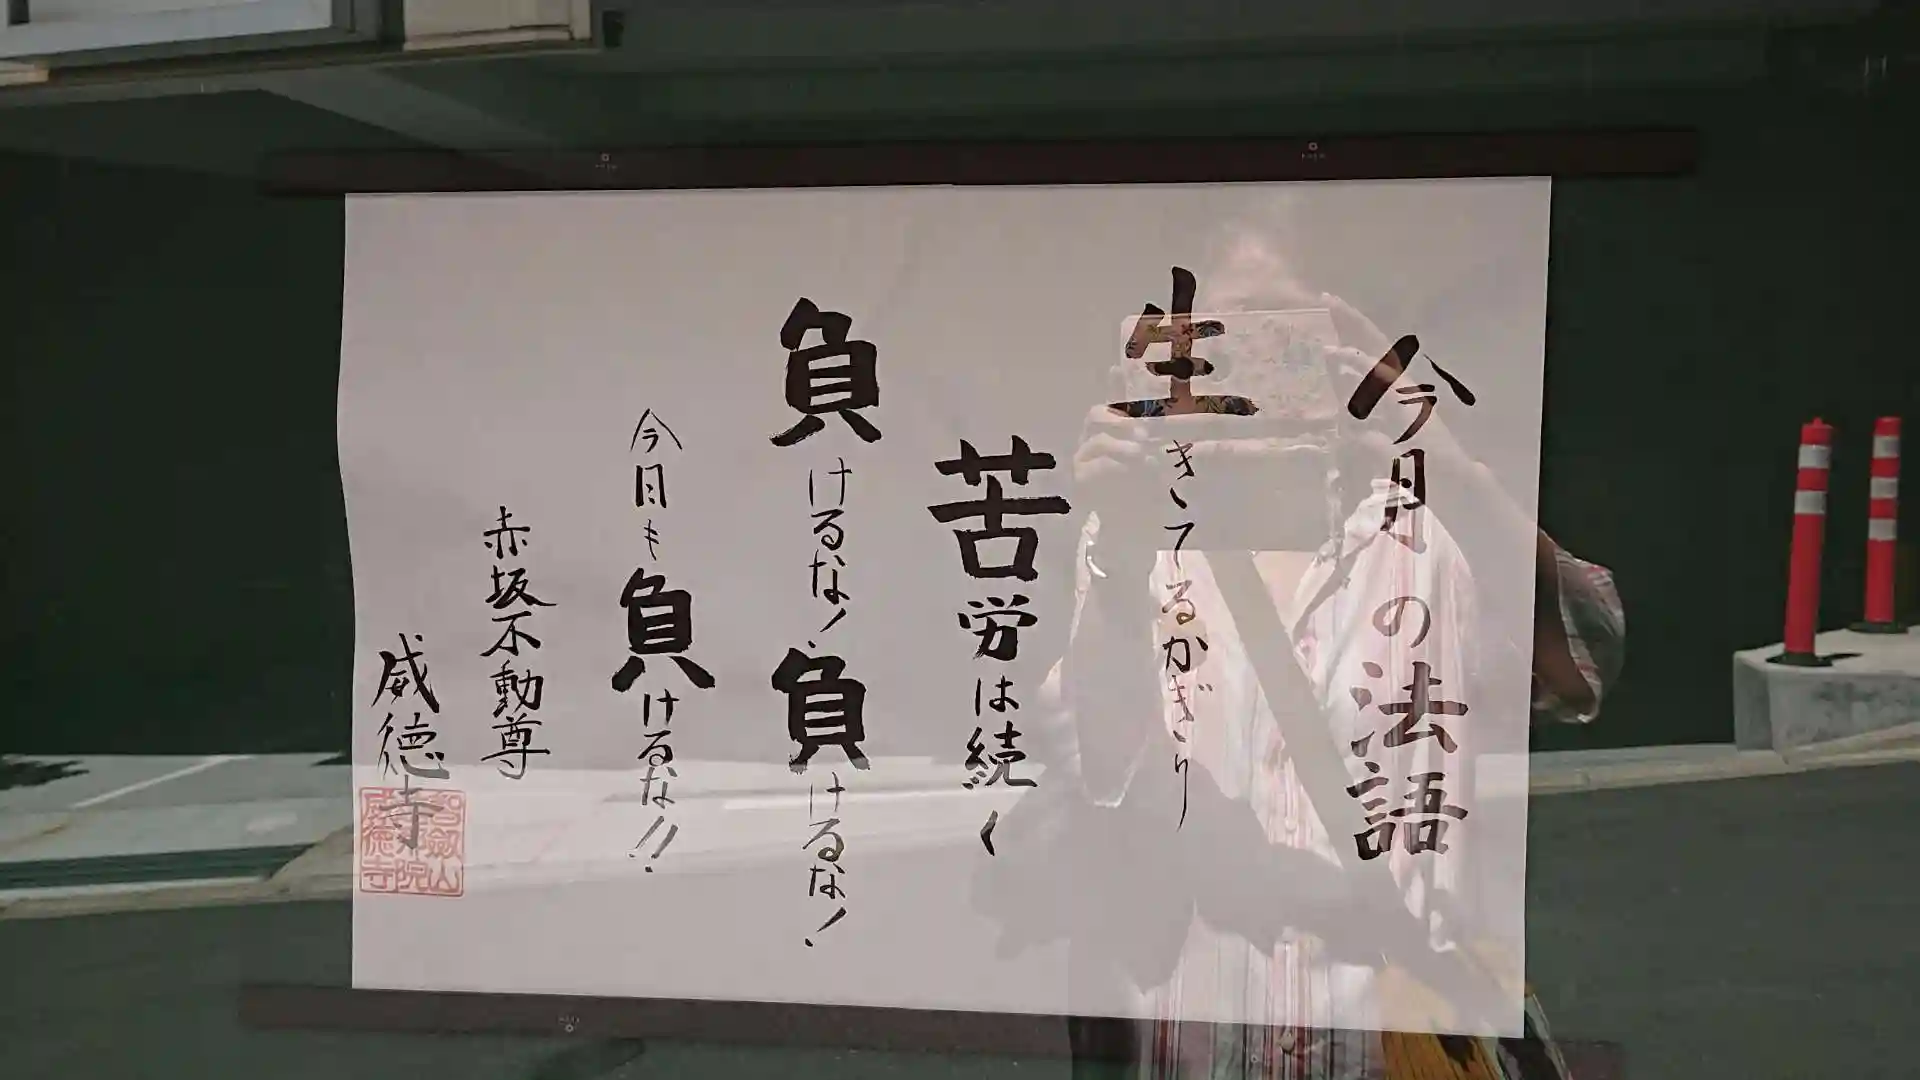 今月の法語
生きてるかぎり
苦労は続く
負けるな!負けるな!
今日も負けるな!!
赤坂不動尊
威徳寺
智剱山
威徳寺